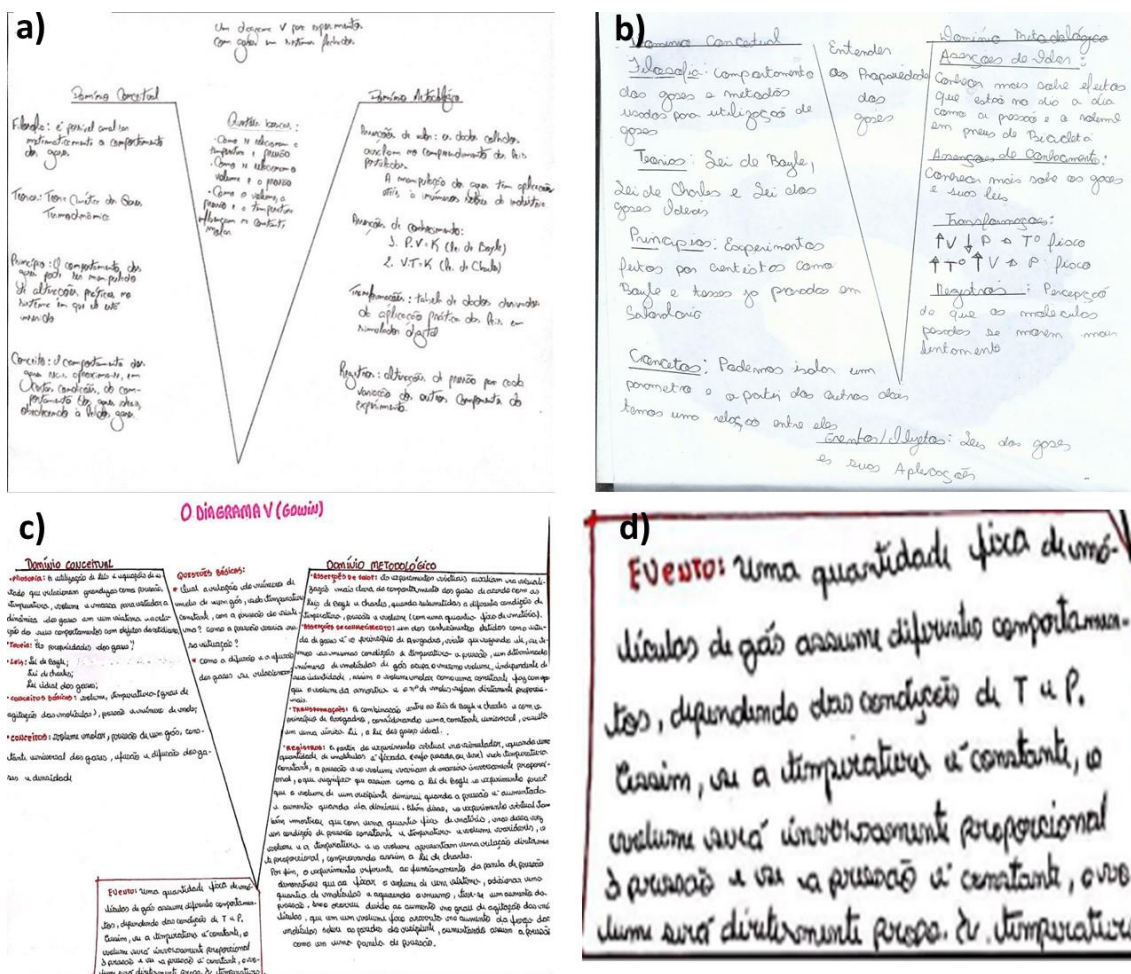 a)
Um diagrama V por experimentos
com gases em sistemas fechados
Domínio Conceitual
Filosofia: é possível analisar
matematicamente o comportamento
dos gases.
Teorias: Teoria Cinética dos Gases
Termodinâmica
Princípio: O comportamento dos
gases pode ser manipulado
alterações práticas no
sistema em que ele está
inserido
Conceito: O comportamento dos
gases reais aproximam, em
certas condições, do com-
portamento dos gases ideais,
obedecendo à lei dos gases.
Questões básicas:
• Como se relacionam a
temperatura e pressão
• Como se relacionam o
volume e a pressão
• Como o volume, a
pressão e a temperatura
influenciam na constante
molar
Domínio Metodológico
Asserções de valor: os dados colhidos
auxiliam no comprendimento das leis
A manipulação dos gases tem aplicações
úteis, a inúmeros setores da indústria
Asserções de conhecimento:
1. P.V=K (lei de Boyle)
2. V.T=K (lei de Charles)
Transformações: tabela de dados derivados
da aplicação prática das leis em
simulador digital
Registros: alterações de pressão por cada
variação dos outros componentes do
experimento.
b)
Dominio Conceitual
Filosofia: Comportamento
dos gases e metodos
usados para utilização de
gases
Teorias: Lei de Boyle,
Lei de Charles e Lei dos
gases Ideais
Principios: Experimentos
feitos por cientistas como
Boyle e teses ja provadas em
Conceitos: Podemos isolar um
parametro e a partir dos outros dois
temos uma relação entre eles
Entender
as Propriedades
dos
gases
Domínio Metodológico
Asserções de Valor:
Conheçer mais sobre efeitos
que estão no dia a dia
como a pressão e o volume
em pneus de Bicicleta
Asserções de Conhecimento:
Conhecer mais sobre os gases
e suas leis
Transformações:
↑V ↓P → Tº fixo
↑Tº ↑V → P fixo
Registros: Percepção
de que as moléculas
pesadas se movem mais
lentamente
Eventos/Objetos: Leis dos gases
e suas Aplicações
c)
O DIAGRAMA V (GOWIN)
DOMÍNIO CONCEITUAL
• FILOSOFIA: A utilização de leis e equações de es-
tado que relacionam grandezas como pressão,
temperatura, volume e massa para estudar a
dinâmica dos gases em um sistema
• Teoria: As propriedades dos gases
• Leis: Lei de Boyle;
Lei de Charles;
Lei ideal dos gases;
• CONCEITOS BÁSICOS: volume, temperatura (grau de
agitação das moléculas), pressão e número de mols;
• CONCEITOS: volume molar, pressão de um gás, cons-
tante universal dos gases, efusão e difusão dos ga-
ses e densidade
QUESTÕES BÁSICAS:
• Qual a relação do número de
mols de um gás, sob temperatura
constante, com a pressão do
• como a difusão e a efusão
dos gases se relacionam
DOMÍNIO METODOLÓGICO
• ASSERÇÕES DE VALOR: Os experimentos virtuais auxiliam na visuali-
zação mais clara do comportamento dos gases de acordo com as
leis de Boyle e Charles, quando submetidos a diferentes condições de
temperatura, pressão e volume (com uma quantia fixa de matéria).
• ASSERÇÕES DE CONHECIMENTO: um dos conhecimentos obtidos
é o princípio de Avogadro
número de moléculas de gás ocupa o mesmo volume, independente de
sua identidade, assim o volume molar
que o volume da amostra e o nº de mols sejam diretamente proporcio-
nais.
• TRANSFORMAÇÕES: A combinação entre as leis de Boyle e Charles e com o
princípio de Avogadro, considerando uma constante universal, resulta
em uma única lei, a lei dos gases ideal.
• REGISTROS: A partir do experimento virtual no simulador, quando uma
quantidade de moléculas é fixada
constante, a pressão e o volume variam de maneira inversamente proporcio-
nal, o que significa que assim como a lei de Boyle o experimento prevê
que o volume de um recipiente diminui quando a pressão é aumentada
e aumenta quando ela diminui. Além disso, o experimento virtual tam-
bém mostrou, que com uma quantia fixa de matéria, mas dessa vez
em condição de pressão constante e temperatura e volume variáveis, o
volume e a temperatura apresentam uma relação diretamen-
te proporcional, comprovando assim a lei de Charles.
Por fim, o experimento referente ao funcionamento da panela de pressão
demonstrou que ao fixar o volume de um sistema, adicionar uma
quantia de moléculas e aquecendo a mesma, tem-se um aumento da
pressão, isso ocorreu devido ao aumento no grau de agitação das mo-
léculas, que em um volume fixo acarreta no aumento da força das
moléculas sobre as paredes do recipiente, aumentando assim a pressão
como em uma panela de pressão.
EVENTO: Uma quantidade fixa de mo-
léculas de gás assume diferentes comportamen-
tos, dependendo das condições de T e P.
Assim, se a temperatura é constante, o
volume será inversamente proporcional
à pressão e se a pressão é constante, o vo-
lume será diretamente propo. à temperatura
d)
EVENTO: Uma quantidade fixa de mó-
léculas de gás assume diferentes comportamen-
tos, dependendo das condições de T e P.
Assim, se a temperatura é constante, o
volume será inversamente proporcional
à pressão e se a pressão é constante, o vo-
lume será diretamente propo. à temperatura